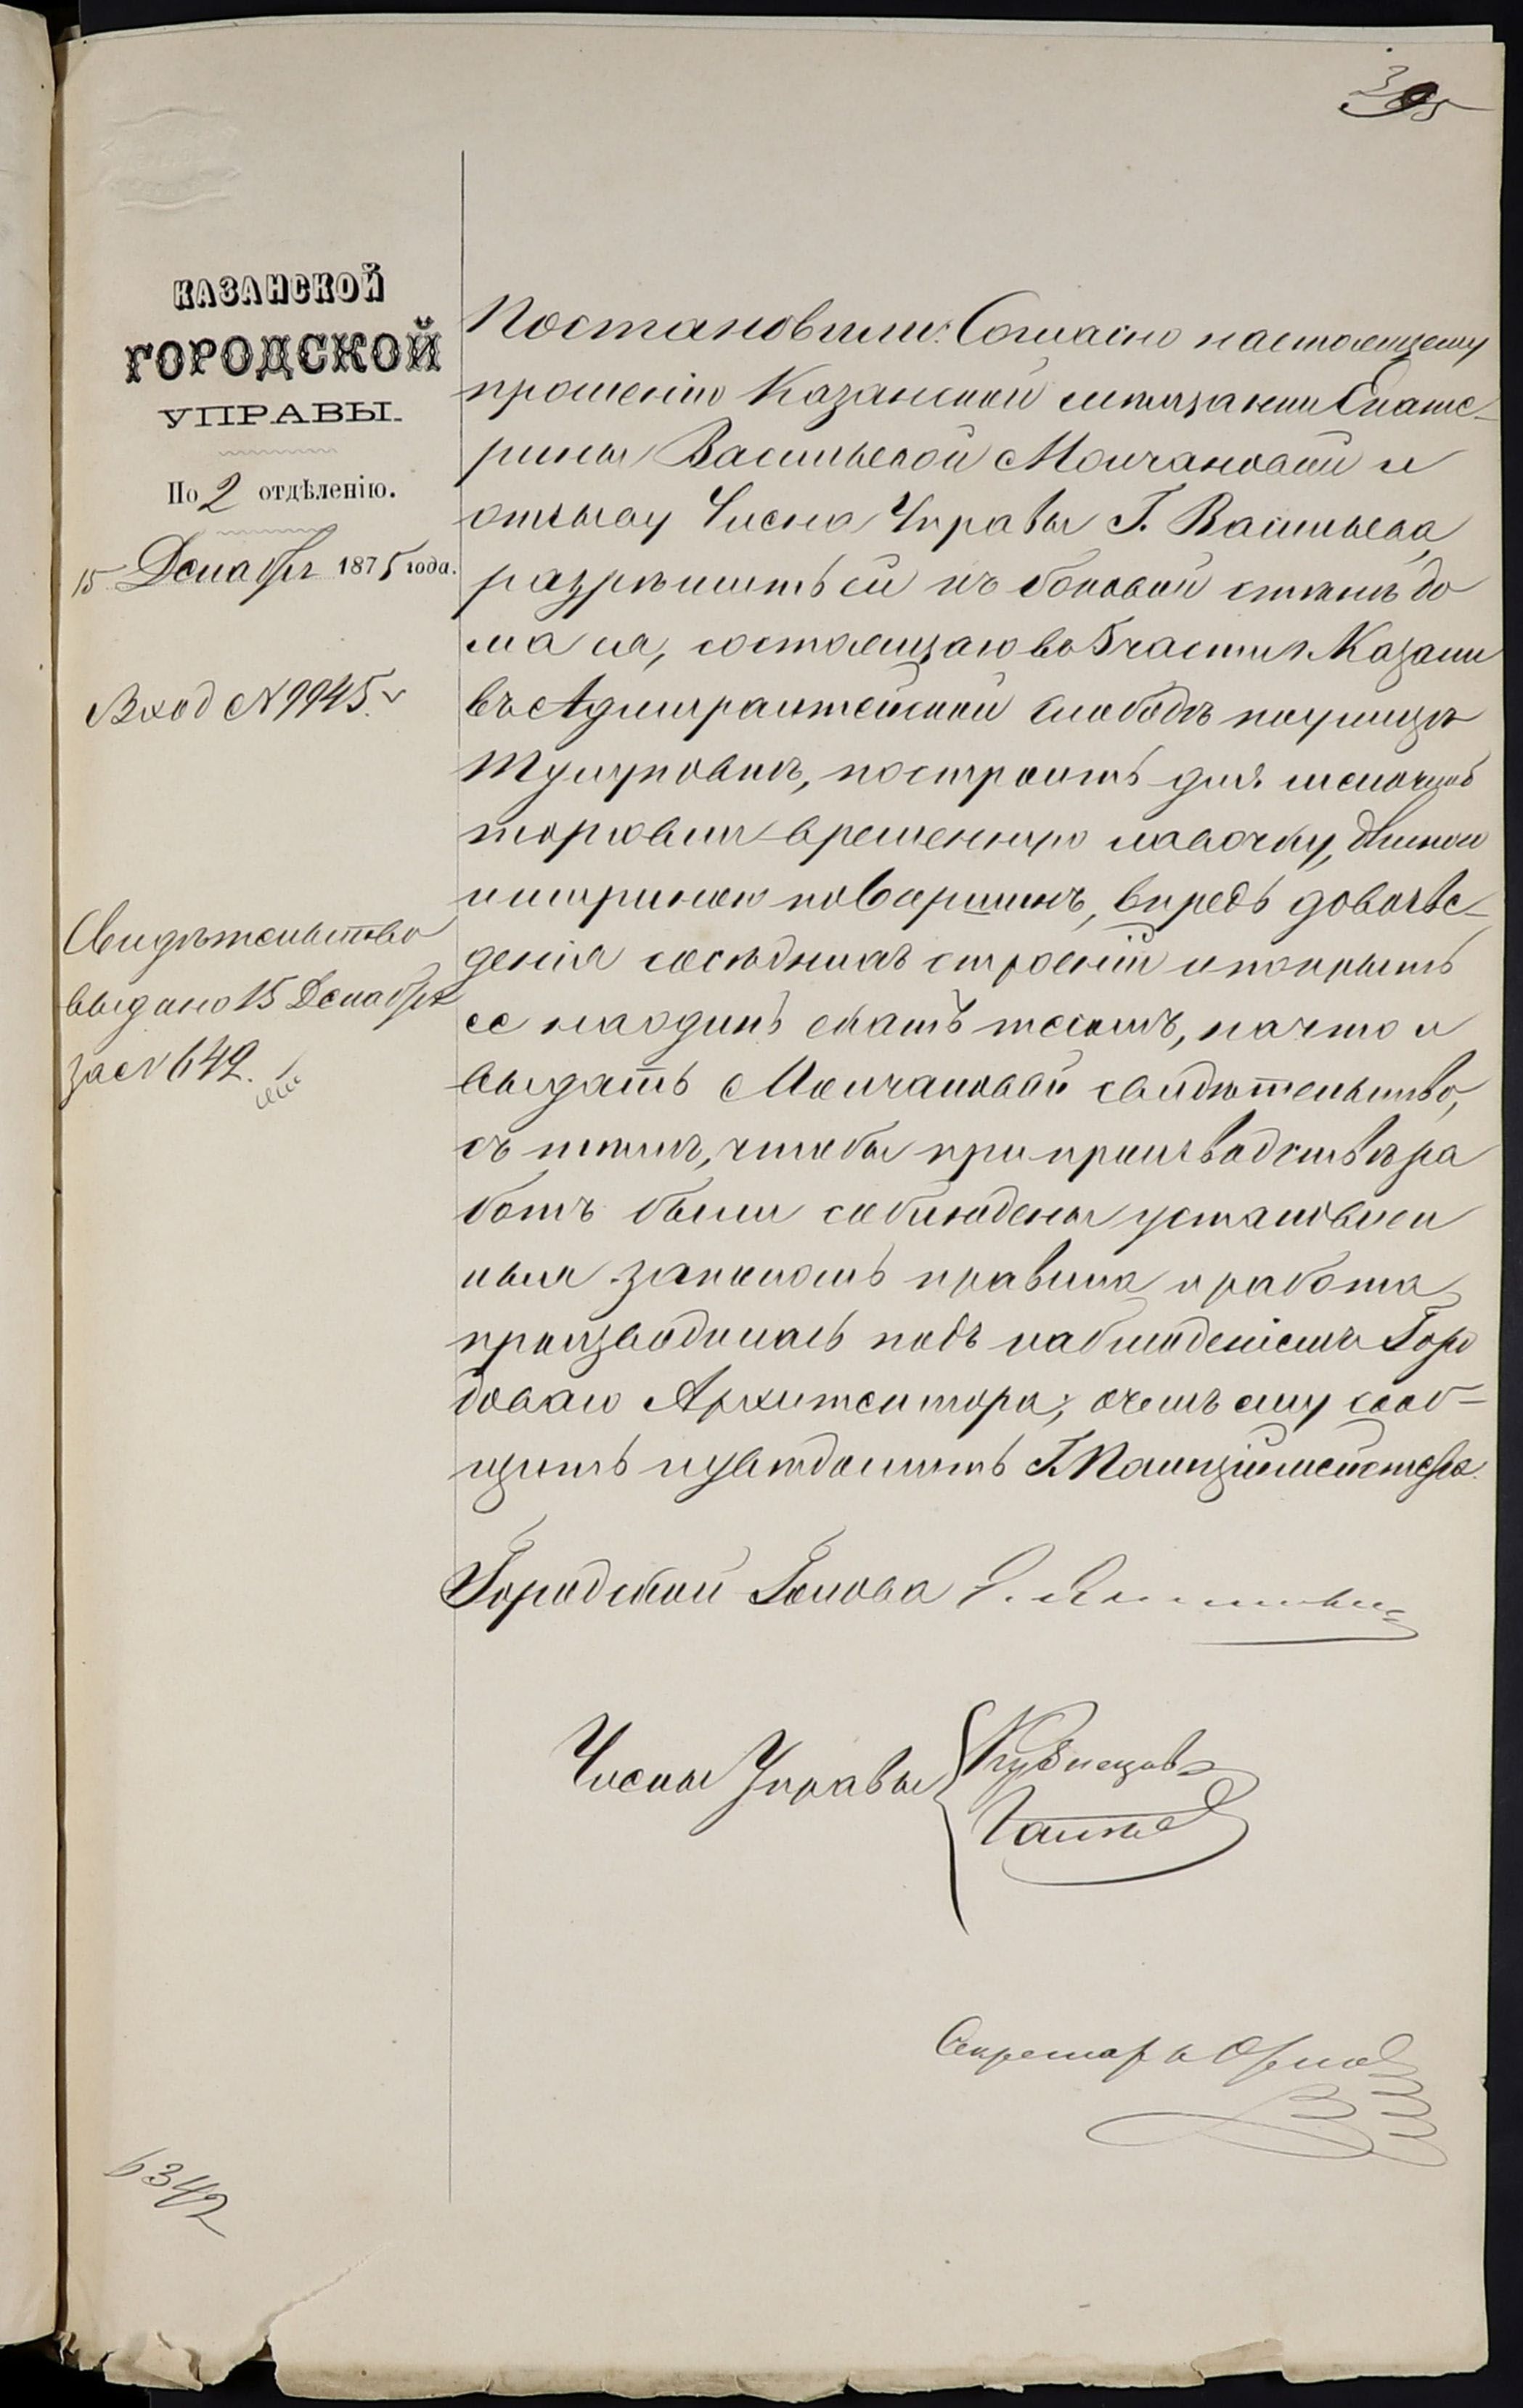 395
КАЗАНСКОЙ
ГОРОДСКОЙ
УПРАВЫ.
По 2 отдѣленію.
15 Декабря 1875 года.
Вход №9945.
Свидѣтельство
выдано 15 Декабря
за №642.
Постановили: Согласно настоящему
прошенію Казанской мѣщанки Екате-
рины Васильевой Молчановой и
отзыву Члена Управы Г. Васильева,
разрѣшить ей къ боковой стѣнѣ до
ма ея, состоящаго въ 5 части г. Казани
въ Адмиралтейской слободѣ по улицѣ
построить для мелочной
торговли временную лавочку, длиною
и шириною по 6 аршинъ, впредь до возве-
денія сосѣднихъ строеній и покрыть
ее на одинъ скатъ тесомъ, на что и
выдать Молчановой свидѣтельство,
съ тѣмъ, чтобы при производствѣ ра
ботъ были соблюдены установлен
ныя закономъ правила и работа
производилась подъ наблюденіемъ Горо
доваго Архитектора, о чемъ ему сооб-
щить и увѣдомить Г. Полиціймейстера.
Городской Голова
Члены Управы
Кузнецовъ
Секретарь Орлов
6342